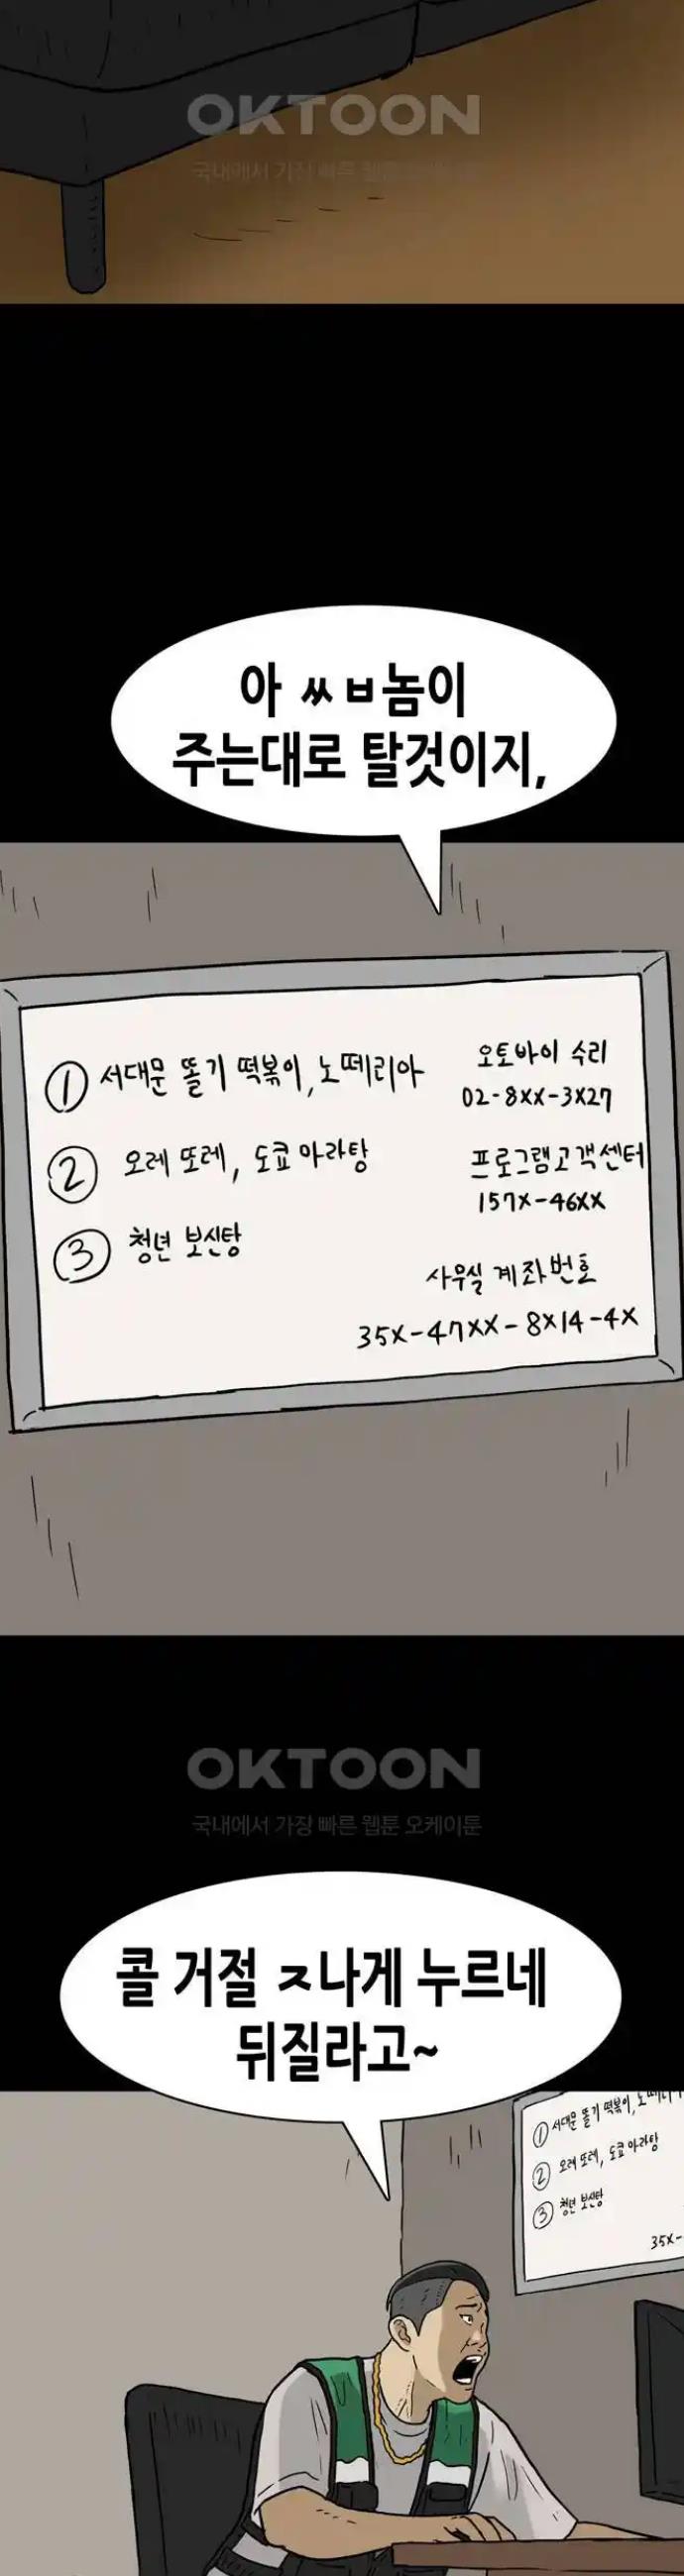 OKTOON
국내에서 가장 빠른 웹툰 오케이툰
아 ㅆㅂ놈이
주는대로 탈것이지,
① 서대문 똘기 떡볶이, 노떼리아
② 오레 또레, 도쿄 마라탕
③ 청년 보신탕
오토바이 수리
02-8XX-3X27
프로그램고객센터
157X-46XX
사무실 계좌번호
35X-47XX-8X14-4X
OKTOON
국내에서 가장 빠른 웹툰 오케이툰
콜 거절 ㅈ나게 누르네
뒤질라고~
① 서대문 똘기 떡볶이, 노떼리
② 오레 또레, 도쿄 마라탕
③ 청년 보신탕
35X-